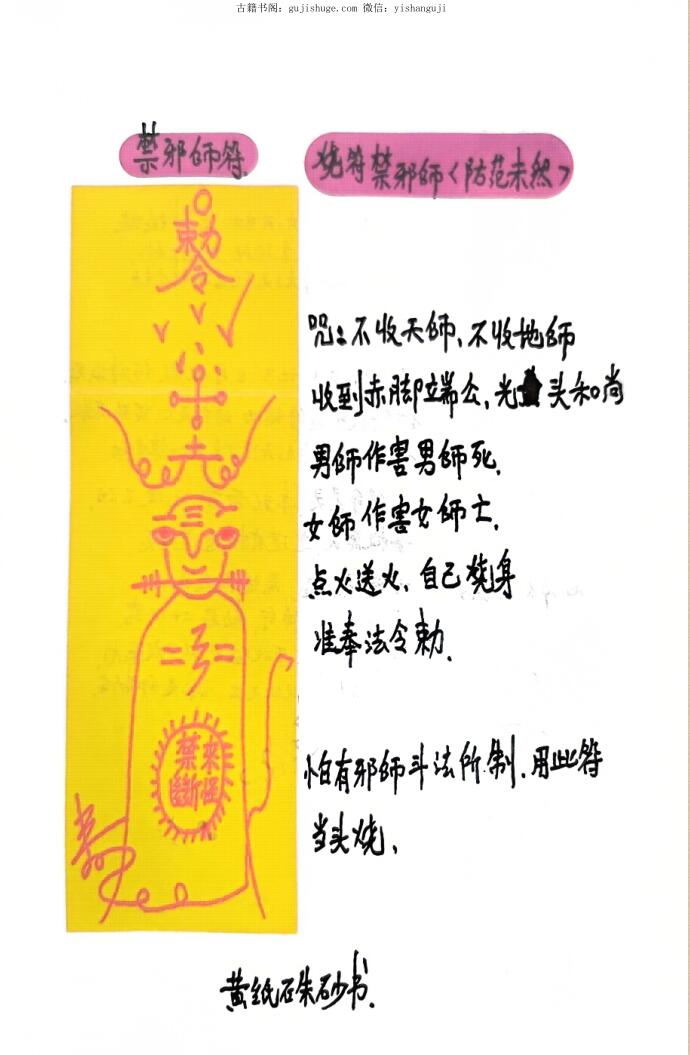 古籍书阁：gujishuge.com 微信：yishanguji
禁邪师符
烧符禁邪師〈防范未然〉
敕令
咒：不收天師、不收地師
收到赤脚端公，光头和尚
男師作害男師死，
女師作害女師亡，
点火送火，自己烧身
准奉法令勅．
禁來
斷怪
怕有邪師斗法所制．用此符
当头烧、
黄纸硃砂书．